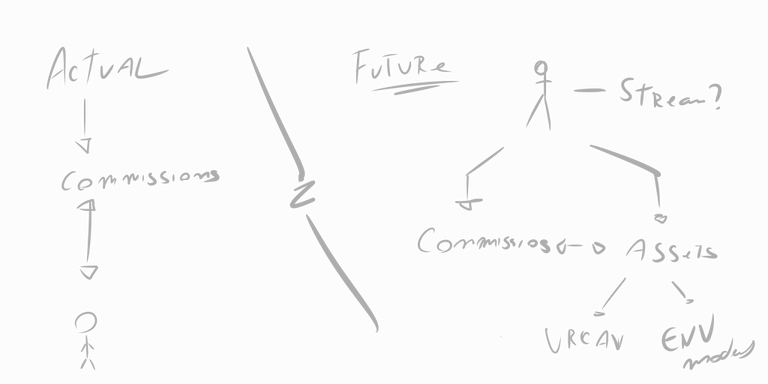 ACTUAL
Commissions
FUTURE
Stream?
Commissios
ASSets
VRCAV
ENV
models